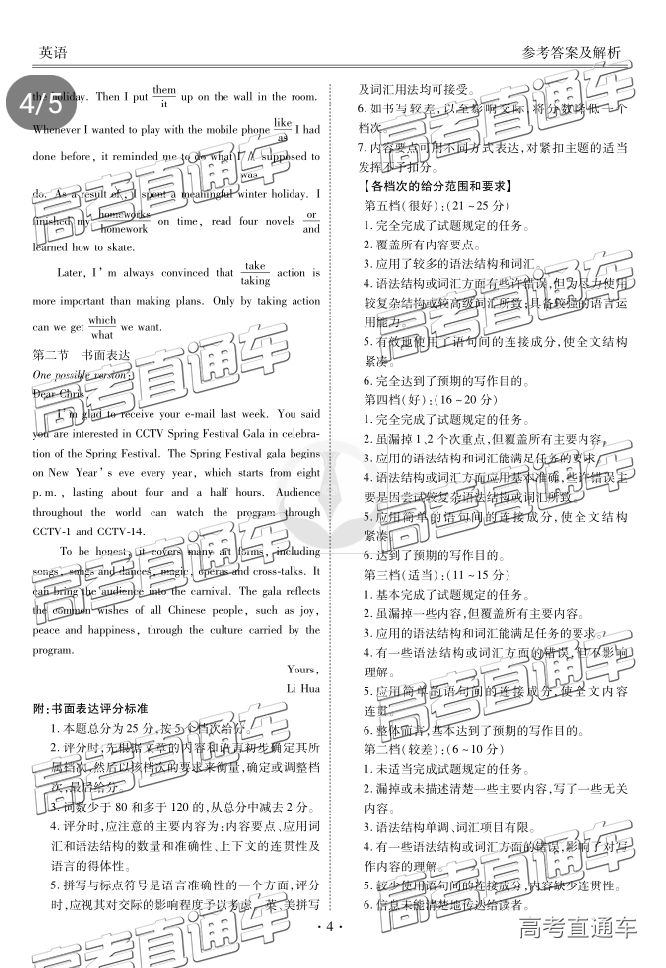 英语
参考答案及解析
4/5
the holiday. Then I put them/it up on the wall in the room.
Whenever I wanted to play with the mobile phone like/as I had
done before, it reminded me to do what I ∧/was supposed to
do. As a result of, I spent a meaningful winter holiday. I
finished my homeworks/homework on time, read four novels or/and
learned how to skate.
Later, I'm always convinced that take/taking action is
more important than making plans. Only by taking action
can we get which/what we want.
第二节 书面表达
One possible version:
Dear Chris,
I'm glad to receive your e-mail last week. You said
you are interested in CCTV Spring Festival Gala in celebra-
tion of the Spring Festival. The Spring Festival gala begins
on New Year's eve every year, which starts from eight
p.m., lasting about four and a half hours. Audience
throughout the world can watch the program through
CCTV-1 and CCTV-14.
To be honest, it covers many art forms, including
songs, songs and dances, magic, operas and cross-talks. It
can bring the audience into the carnival. The gala reflects
the common wishes of all Chinese people, such as joy,
peace and happiness, through the culture carried by the
program.
Yours,
Li Hua
附:书面表达评分标准
1.本题总分为25分,按5个档次给分。
2.评分时,先根据文章的内容和语言初步确定其所
属档次,然后以该档次的要求来衡量,确定或调整档
次,最后给分。
3.词数少于80和多于120的,从总分中减去2分。
4.评分时,应注意的主要内容为:内容要点、应用词
汇和语法结构的数量和准确性、上下文的连贯性及
语言的得体性。
5.拼写与标点符号是语言准确性的一个方面,评分
时,应视其对交际的影响程度予以考虑。英、美拼写
及词汇用法均可接受。
6.如书写较差,以至影响交际,将分数降低一个
档次。
7.内容要点可用不同方式表达,对紧扣主题的适当
发挥不予扣分。
【各档次的给分范围和要求】
第五档(很好):(21~25分)
1.完全完成了试题规定的任务。
2.覆盖所有内容要点。
3.应用了较多的语法结构和词汇。
4.语法结构或词汇方面有些许错误,但为尽力使用
较复杂结构或较高级词汇所致;具备较强的语言运
用能力。
5.有效地使用了语句间的连接成分,使全文结构
紧凑。
6.完全达到了预期的写作目的。
第四档(好):(16~20分)
1.完全完成了试题规定的任务。
2.虽漏掉1、2个次重点,但覆盖所有主要内容。
3.应用的语法结构和词汇能满足任务的要求。
4.语法结构或词汇方面应用基本准确,些许错误主
要是因尝试较复杂语法结构或词汇所致。
5.应用简单的语句间的连接成分,使全文结构
紧凑。
6.达到了预期的写作目的。
第三档(适当):(11~15分)
1.基本完成了试题规定的任务。
2.虽漏掉一些内容,但覆盖所有主要内容。
3.应用的语法结构和词汇能满足任务的要求。
4.有一些语法结构或词汇方面的错误,但不影响
理解。
5.应用简单的语句间的连接成分,使全文内容
连贯。
6.整体而言,基本达到了预期的写作目的。
第二档(较差):(6~10分)
1.未适当完成试题规定的任务。
2.漏掉或未描述清楚一些主要内容,写了一些无关
内容。
3.语法结构单调、词汇项目有限。
4.有一些语法结构或词汇方面的错误,影响了对写
作内容的理解。
5.较少使用语句间的连接成分,内容缺少连贯性。
6.信息未能清楚地传达给读者。
·4·
高考直通车